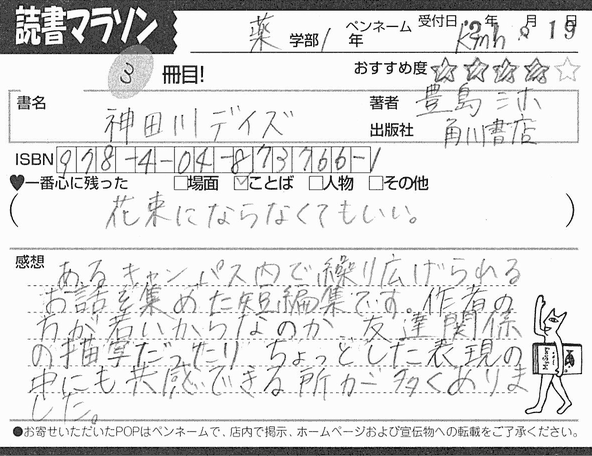 読書マラソン
薬 学部 1 年 ペンネーム Kinn 受付日 '2 年 8 月 19 日
3 冊目! おすすめ度 ★★★★☆
書名 神田川デイズ 著者 豊島ミホ
出版社 角川書店
ISBN 978-4-04-873766-1
♥一番心に残った □場面 ☑ことば □人物 □その他
(花束にならなくてもいい。)
感想 あるキャンパス内で繰り広げられる
お話を集めた短編集です。作者の
方が若いからなのか、友達関係
の描写だったり ちょっとした表現の
中にも共感できる所が多くありま
した。
●お寄せいただいたPOPはペンネームで、店内で掲示、ホームページおよび宣伝物への転載をご了承ください。